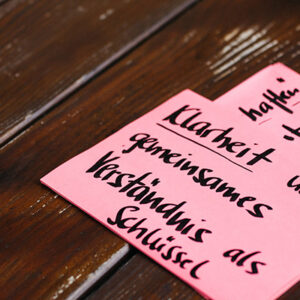 haften"
Klarheit
gemeinsames
Verständnis als
Schlüssel